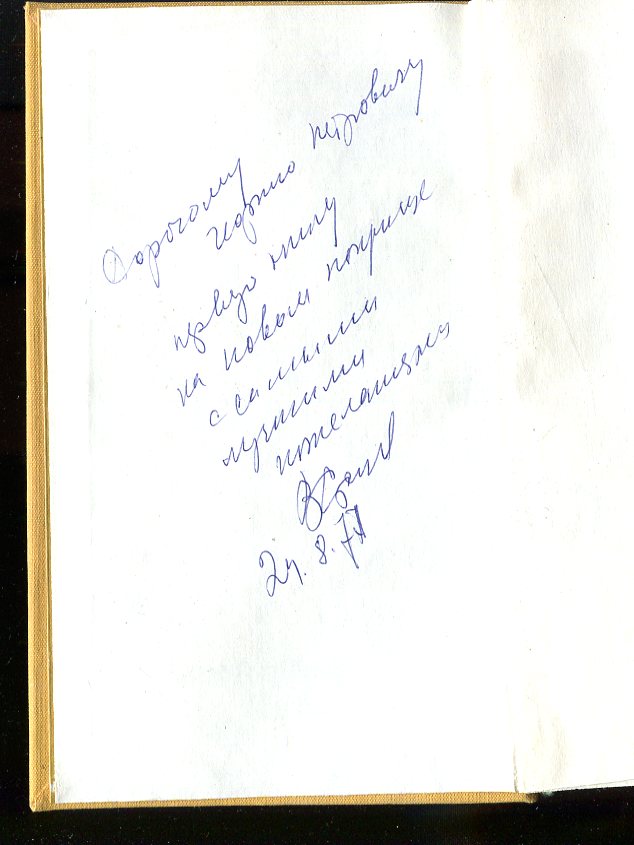 Дорогому
Петровичу
первую книгу
на новом поприще
с самыми
лучшими
пожеланиями
24. 8. 77